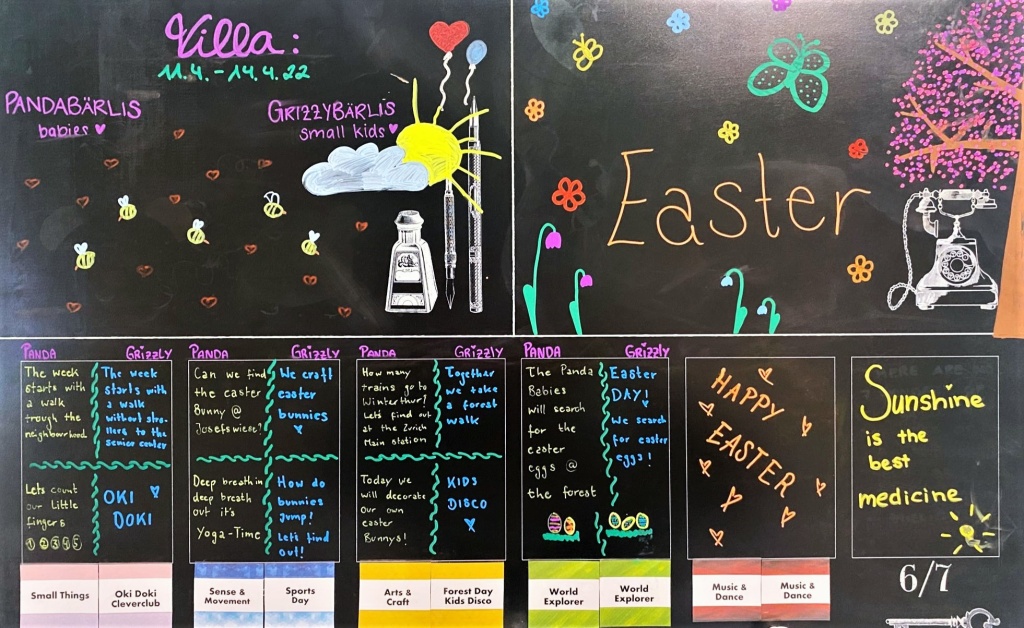 Villa:
11.4. - 14.4.22
PANDABÄRLIS
babies
GRIZZYBÄRLIS
small kids
Easter
PANDA
The week
starts with
a walk
trough the
neighbourhood
Lets count
our little
fingers
1 2 3 4 5
GRIZZLY
The week
starts with
a walk
without stro-
llers to the
senior center
OKI
DOKI
PANDA
Can we find
the easter
Bunny @
Josefswiese?
Deep breath in
deep breath
out it's
Yoga-Time
GRIZZLY
We craft
easter
bunnies
How do
bunnies
jump?
Let's find
out!
PANDA
How many
trains go to
Winterthur?
Lets find out
at the Zürich
Main station
Today we
will decorate
our own
easter
Bunnys!
GRIZZLY
Together
we take
a forest
walk
KIDS
DISCO
PANDA
The Panda
Babies
will search
for the
easter
eggs @
the forest
GRIZZLY
Easter
DAY!
We search
for easter
eggs!
HAPPY
EASTER
Sunshine
is the
best
medicine
Small Things
Oki Doki
Cleverclub
Sense &
Movement
Sports
Day
Arts &
Craft
Forest Day
Kids Disco
World
Explorer
World
Explorer
Music &
Dance
Music &
Dance
6/7